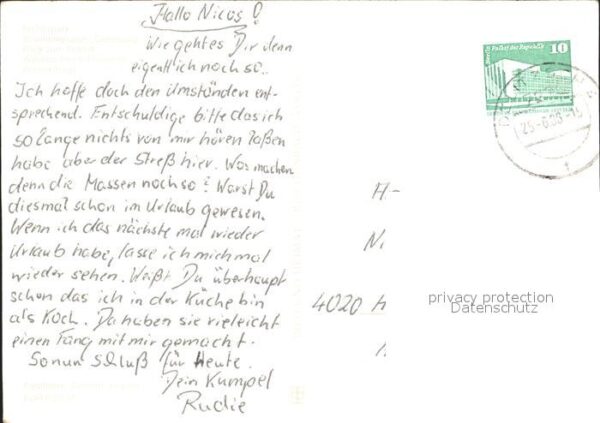 Hallo Nicos!
Wie gehtes Dir denn
eigentlich noch so..
Ich hoffe doch den Umständen ent-
sprechend. Entschuldige bitte das ich
so lange nichts von mir hören laßen
habe aber der Streß hier. Was machen
denn die Massen noch so? Warst Du
diesmal schon im Urlaub gewesen.
Wenn ich das nächste mal wieder
Urlaub habe, lasse ich mich mal
wieder sehen. Weißt Du überhaupt
schon das ich in der Küche bin
als Koch. Da haben sie vieleicht
einen Fang mit mir gemacht.
So nun Schluß für Heute.
Dein Kumpel
Rudie
Palast der Republik 10
4020
privacy protection
Datenschutz